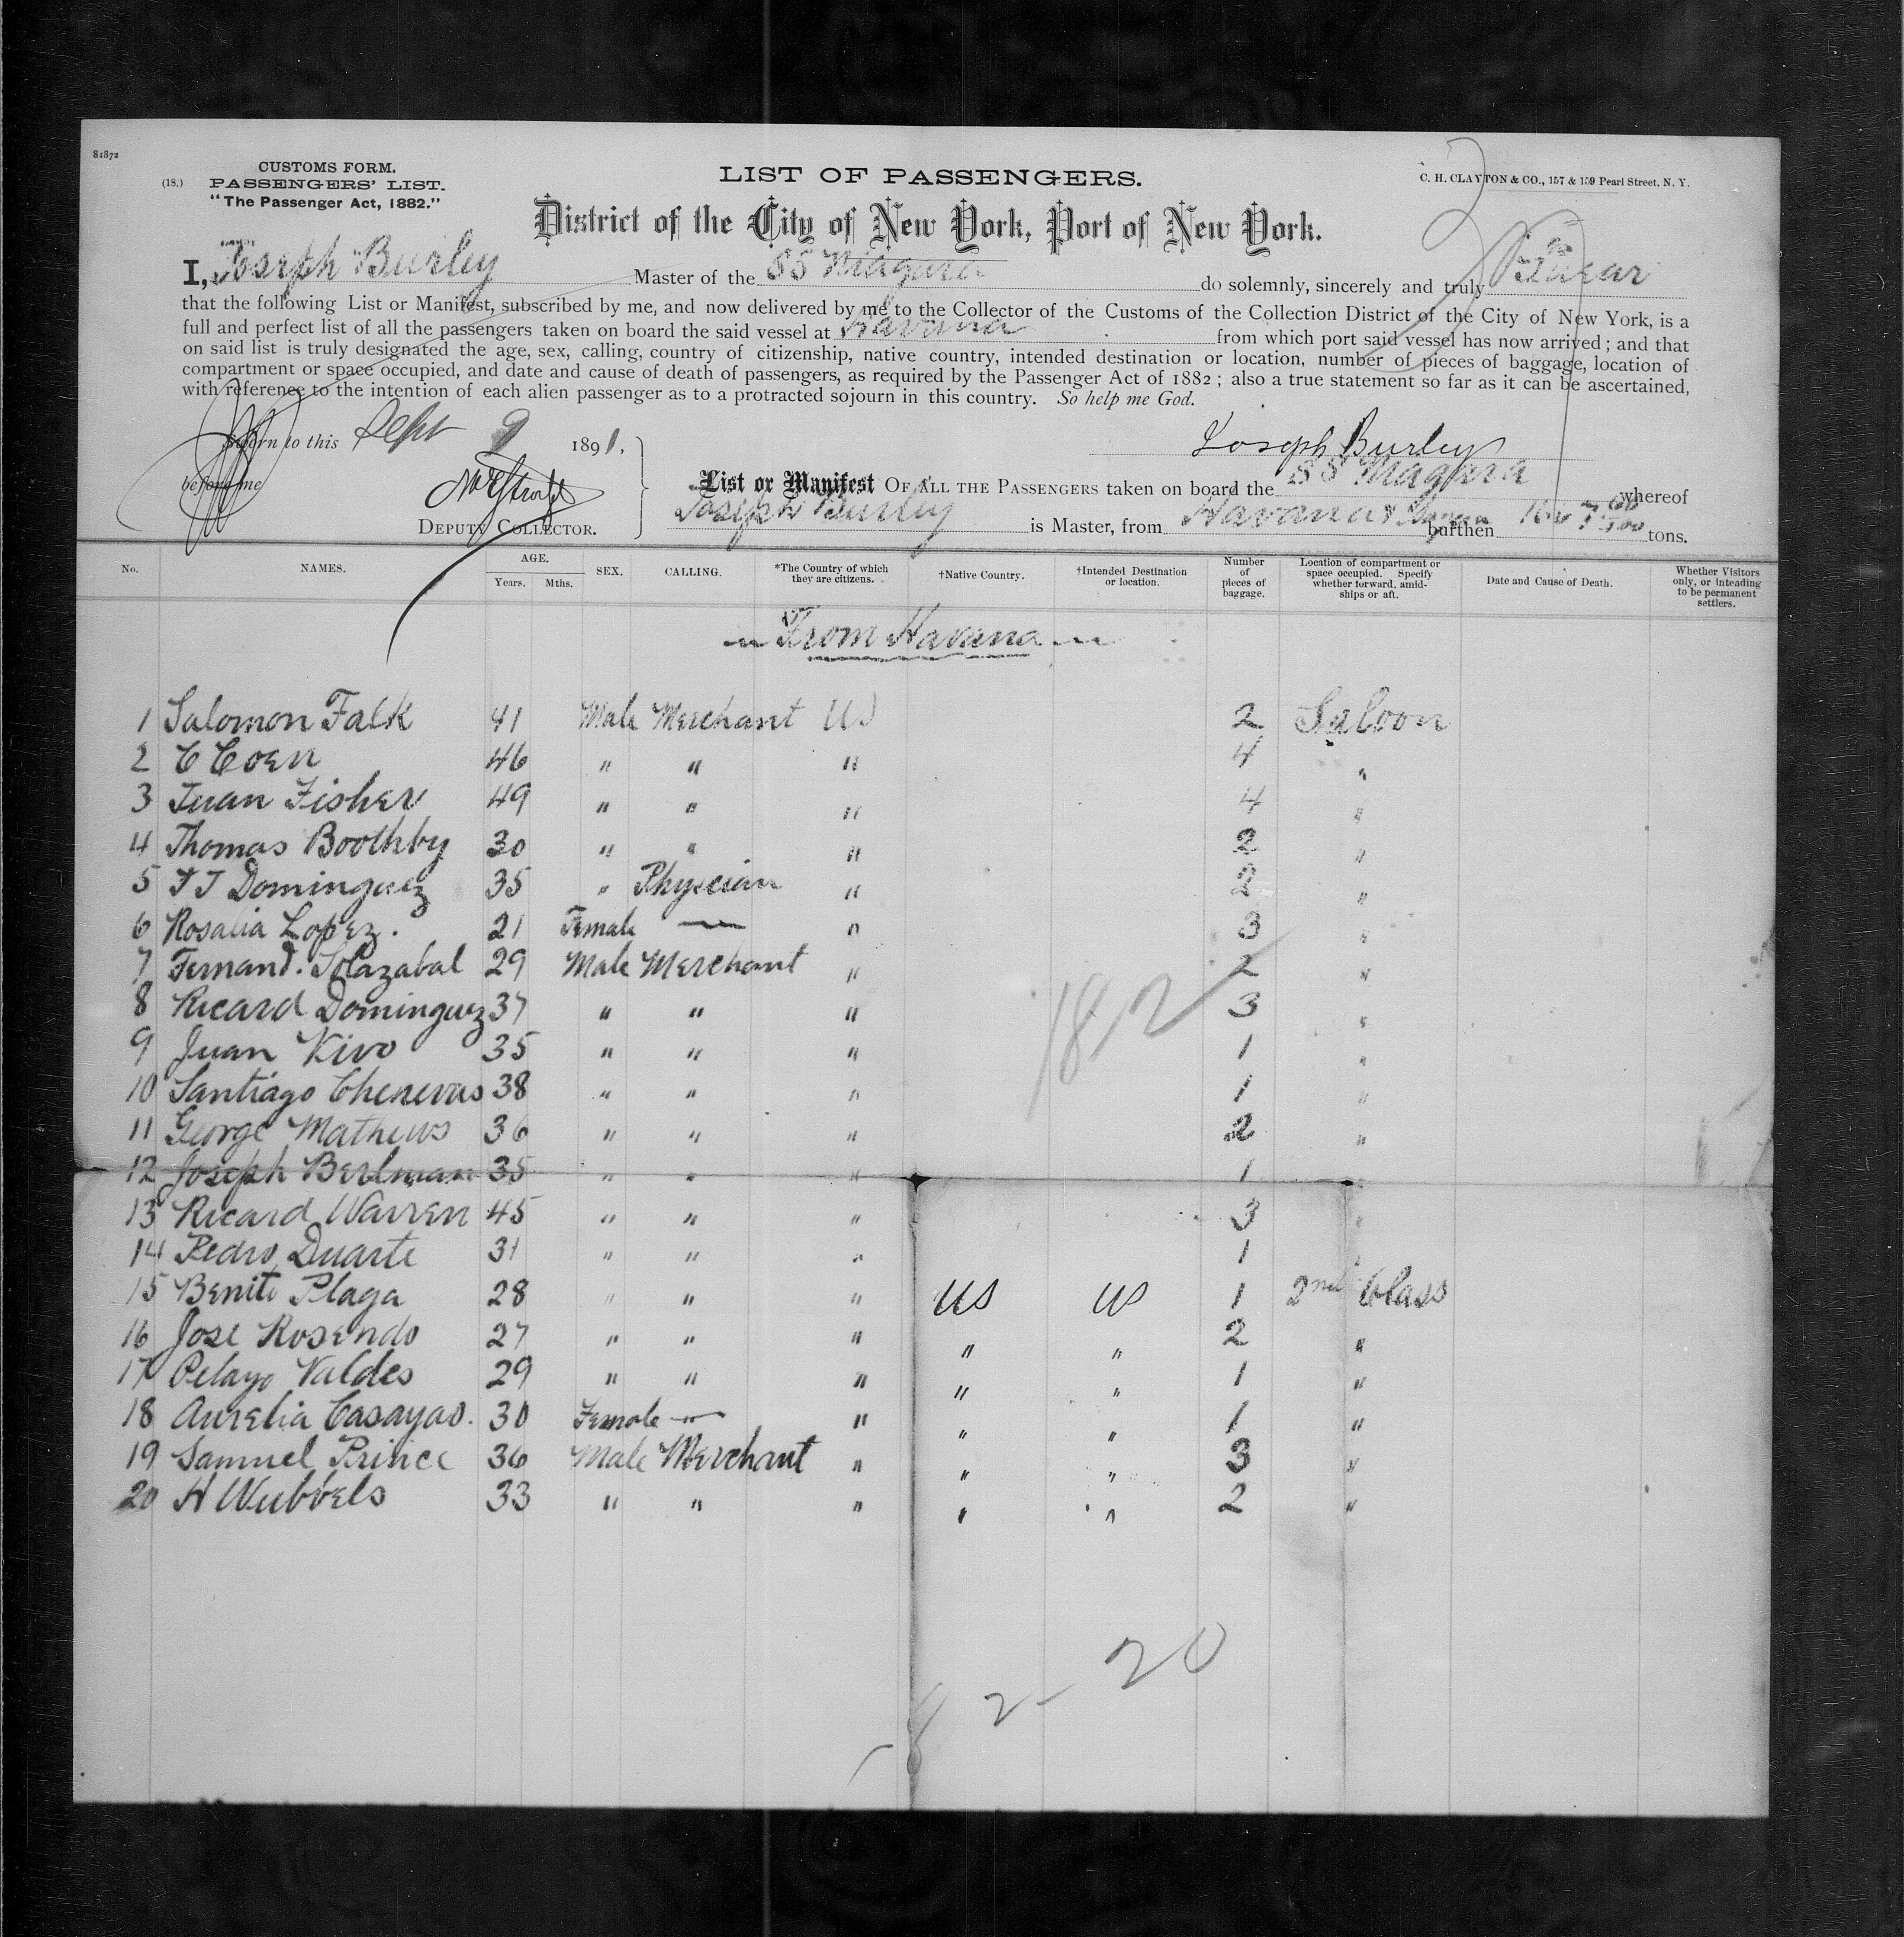 81872
CUSTOMS FORM.
(18.) PASSENGERS' LIST.
"The Passenger Act, 1882."
LIST OF PASSENGERS.
C. H. CLAYTON & CO., 157 & 159 Pearl Street, N. Y.
District of the City of New York, Port of New York.
I, Joseph Burley Master of the SS Niagara do solemnly, sincerely and truly Swear
that the following List or Manifest, subscribed by me, and now delivered by me to the Collector of the Customs of the Collection District of the City of New York, is a
full and perfect list of all the passengers taken on board the said vessel at Havana from which port said vessel has now arrived; and that
on said list is truly designated the age, sex, calling, country of citizenship, native country, intended destination or location, number of pieces of baggage, location of
compartment or space occupied, and date and cause of death of passengers, as required by the Passenger Act of 1882; also a true statement so far as it can be ascertained,
with reference to the intention of each alien passenger as to a protracted sojourn in this country. So help me God.
Sworn to this Sept 9 1891,
Joseph Burley
before me
DEPUTY COLLECTOR.
List or Manifest OF ALL THE PASSENGERS taken on board the SS Niagara whereof
Joseph Burley is Master, from Havana burthen tons.
No. NAMES. AGE. Years. Mths. SEX. CALLING. *The Country of which they are citizens. †Native Country. †Intended Destination or location. Number of pieces of baggage. Location of compartment or space occupied. Specify whether forward, amidships or aft. Date and Cause of Death. Whether Visitors only, or intending to be permanent settlers.
From Havana
1 Salomon Falk 41 Male Merchant US 2 Saloon
2 C Coen 46 " " " 4 "
3 Juan Fisher 49 " " " 4 "
4 Thomas Boothby 30 " " " 2 "
5 F J Dominguez 35 " Physician " 2 "
6 Rosalia Lopez. 21 Female — " 3 "
7 Fernand. 29 Male Merchant " 2 "
8 Ricard Dominguez 37 " " " 3 "
9 Juan Vivo 35 " " " 1 "
10 Santiago 38 " " " 1 "
11 George Mathews 36 " " " 2 "
12 Joseph Berlman 35 " " " 1 "
13 Ricard Warren 45 " " " 3 "
14 Pedro Duarte 31 " " " 1 "
15 Benito Plaga 28 " " " US US 1 2nd Class
16 Jose Rosendo 27 " " " " " 2 "
17 Pelayo Valdes 29 " " " " " 1 "
18 Aurelia Casayas. 30 Female — " " " 1 "
19 Samuel Prince 36 Male Merchant " " " 3 "
20 H Wubbels 33 " " " " " 2 "
182
2 - 20